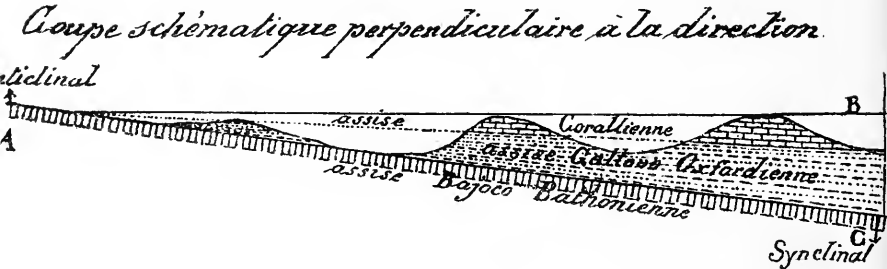 Coupe schématique perpendiculaire à la direction.
nticlinal
B
assise Corallienne
A
assise Callovo Oxfordienne
assise Bajoco Bathonienne
C
Synclinal